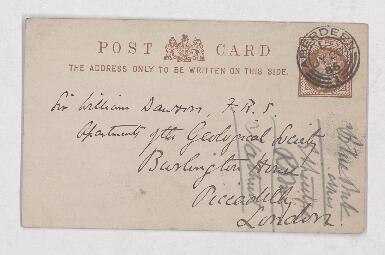 POST CARD
THE ADDRESS ONLY TO BE WRITTEN ON THIS SIDE.
ABERDEEN
Sir William Dawson, F.R.S
Apartments of the Geological Society
Burlington House
Piccadilly
London.